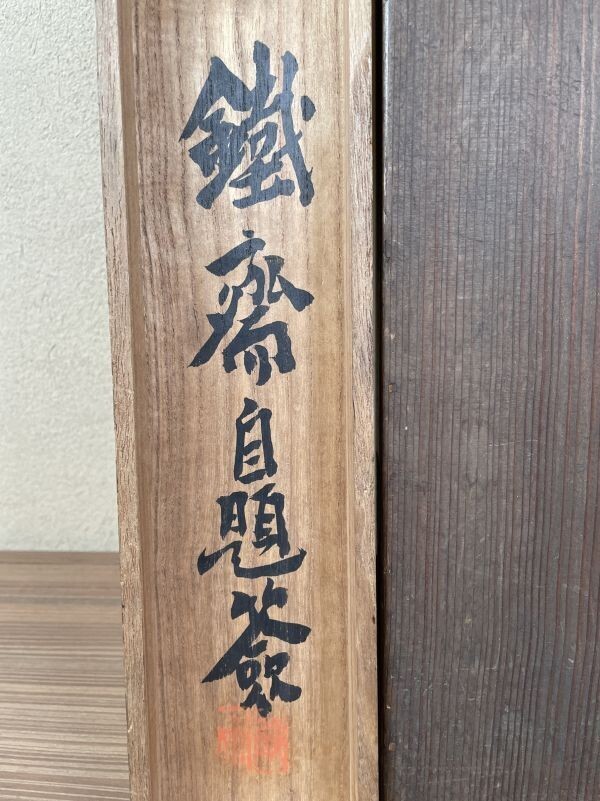 鐵齋自題簽